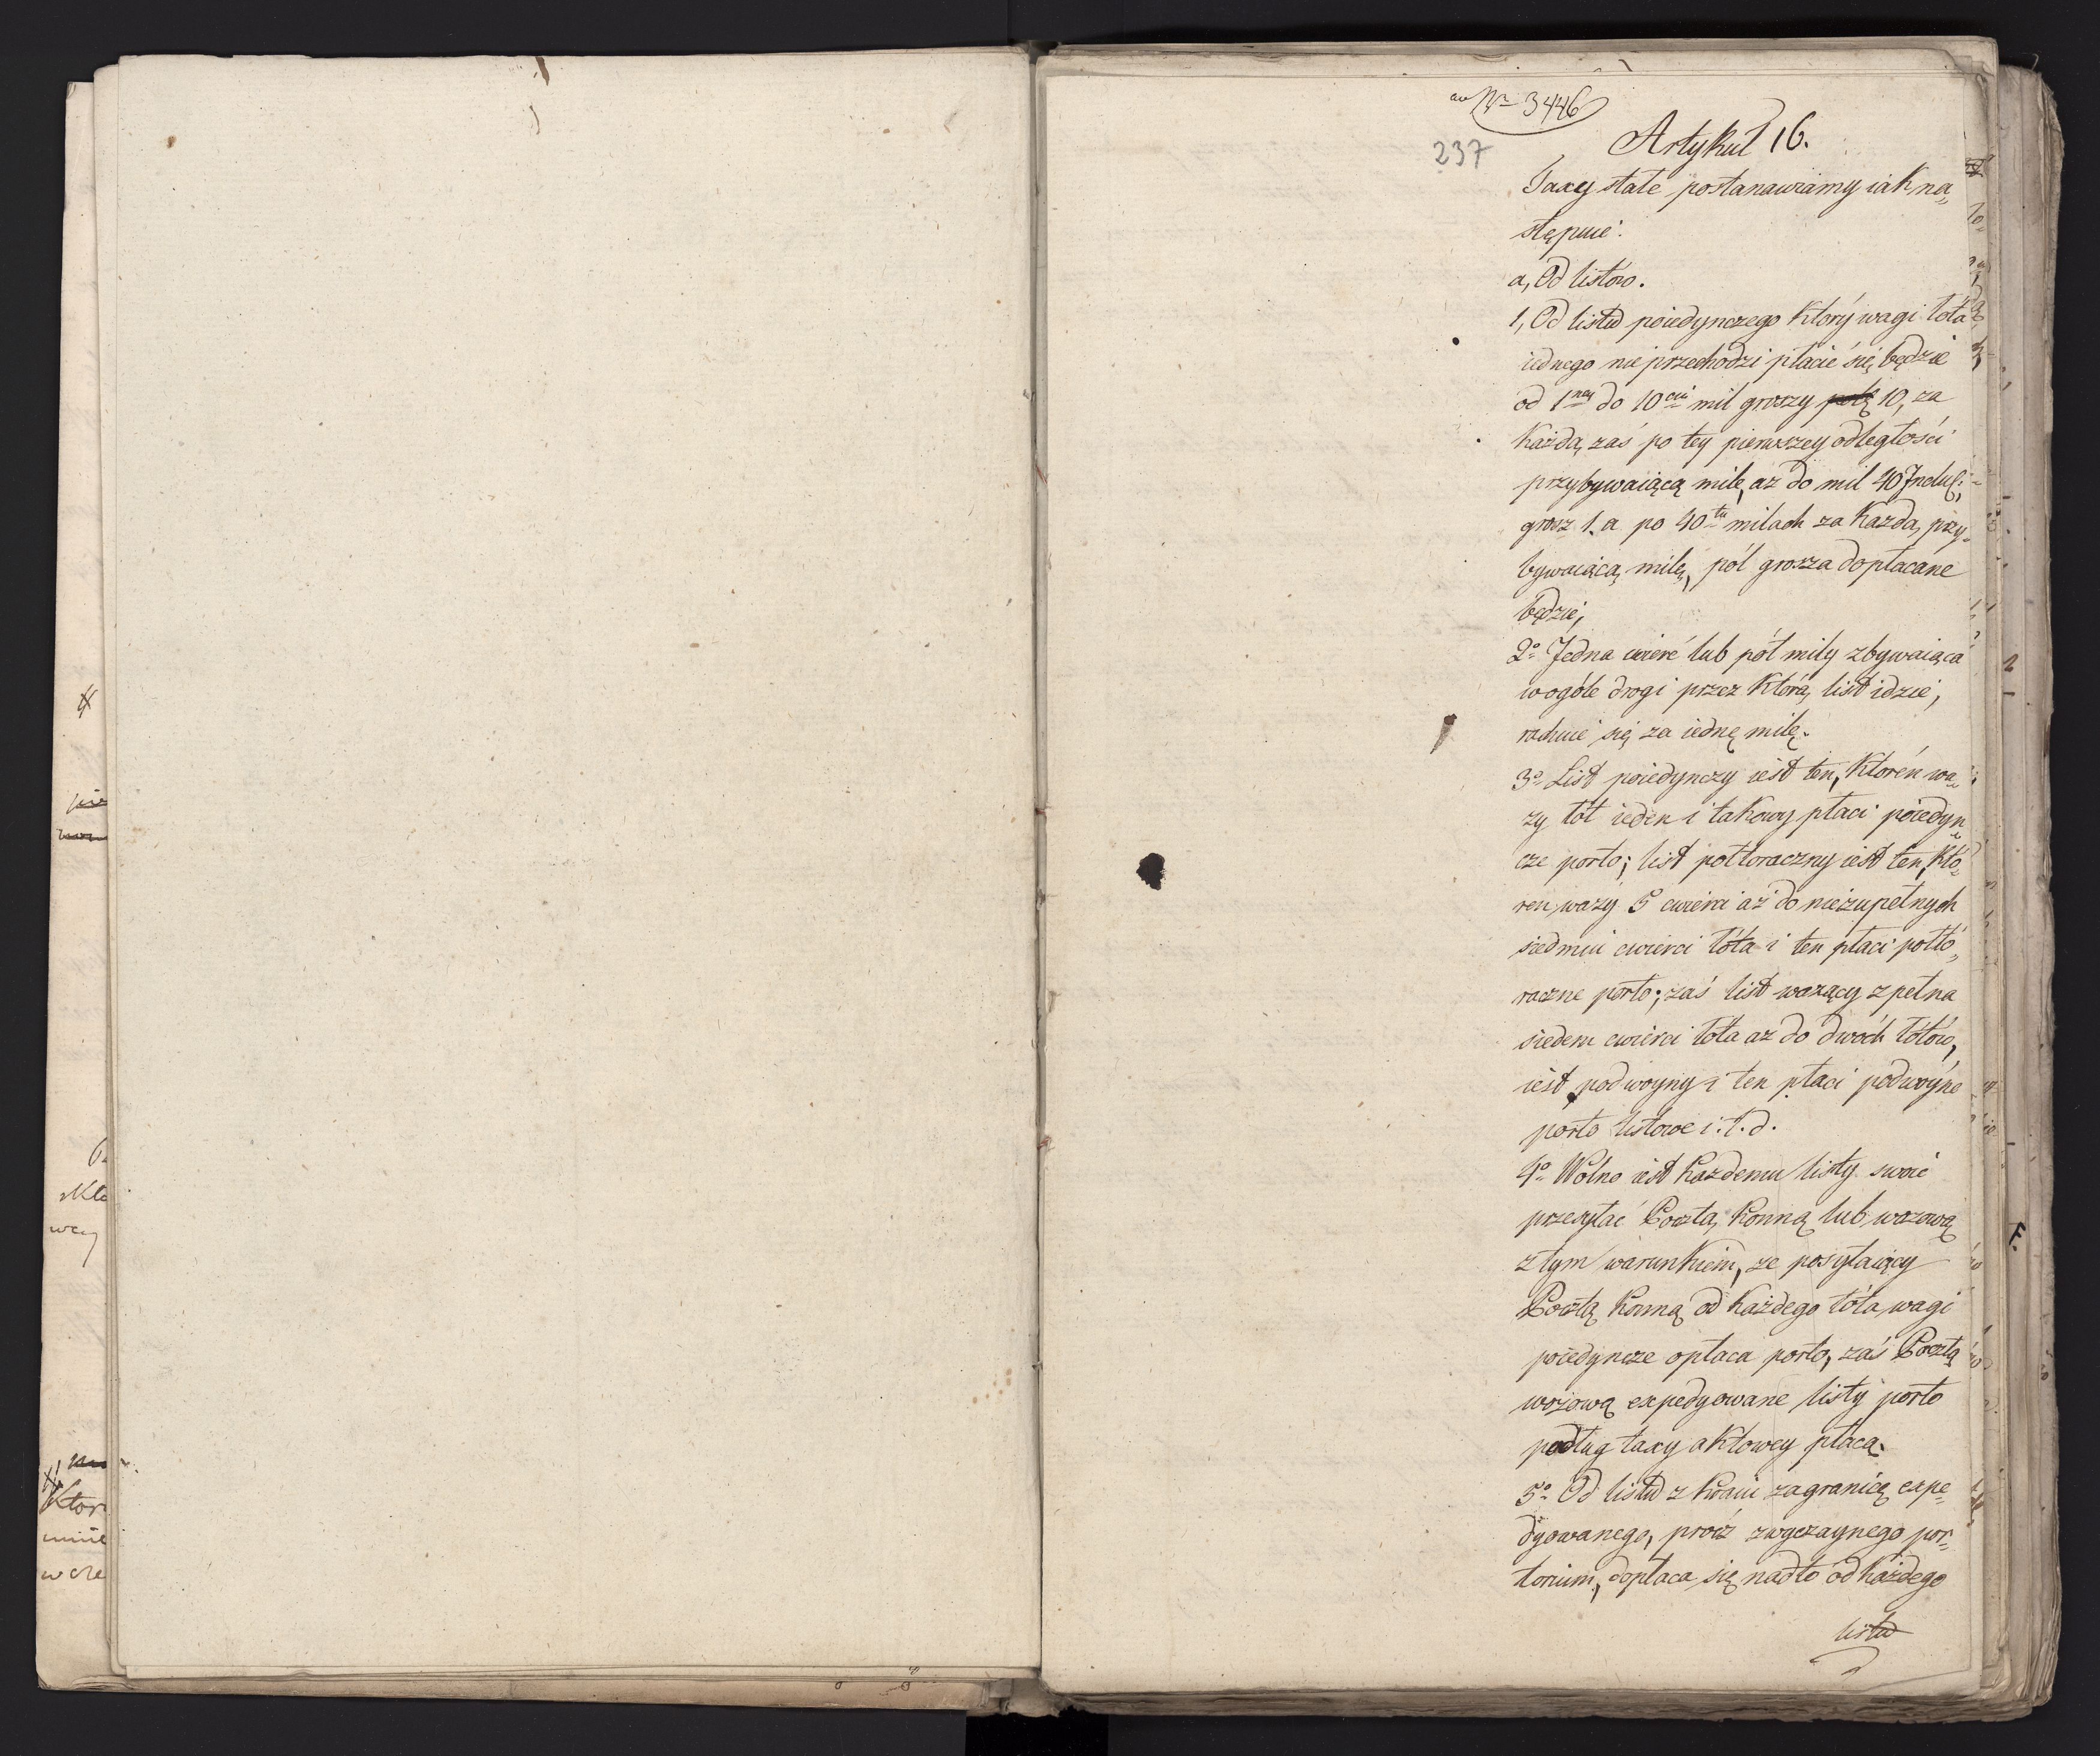 ad Nr 3446
237
Artykuł 16.
Taxy stałe postanawiamy iak na„
stępuie:
a, Od listów.
1, Od listu poiedynczego który wagi łóta
iednego nie przechodzi płacić się będzie
od 1ney do 10ciu mil groszy 10, za
każdą zaś po tey pierwszey odległości
przybywaiącą milę, aż do mil 40 Inclus:
grosz 1. a po 40tu milach za każdą przy„
bywaiącą milę, pół grosza dopłacane
będzie,
2o Jedna ćwierć lub pół mily zbywaiąca
w ogóle drogi przez którą list idzie,
rachuie się za iednę milę.
3o List poiedynczy iest ten, któren wa„
ży łót ieden i takowy płaci poiedyn„
cze porto; list półtoraczny iest ten, któ„
ren waży 5 ćwierci aż do niezupełnych
siedmiu ćwierci łóta i ten płaci półto„
raczne porto; zaś list ważący zpełna
siedem ćwierci łóta aż do dwóch łótów,
iest podwoyny i ten płaci podwóyne
porto listowe i. t. d.
4o Wolno iest każdemu listy swoie
przesyłać Pocztą konną lub wozową
z tym warunkiem, że posyłaiący
Pocztą konną od każdego łóta wagi
poiedyncze opłaca porto, zaś Pocztą
wozową expedyowane listy porto
podług taxy aktowey płacą.
5o Od listu z kraiu zagranicę expe„
dyowanego, procz zwyczaynego por„
torium, dopłaca się nadto od każdego
listu